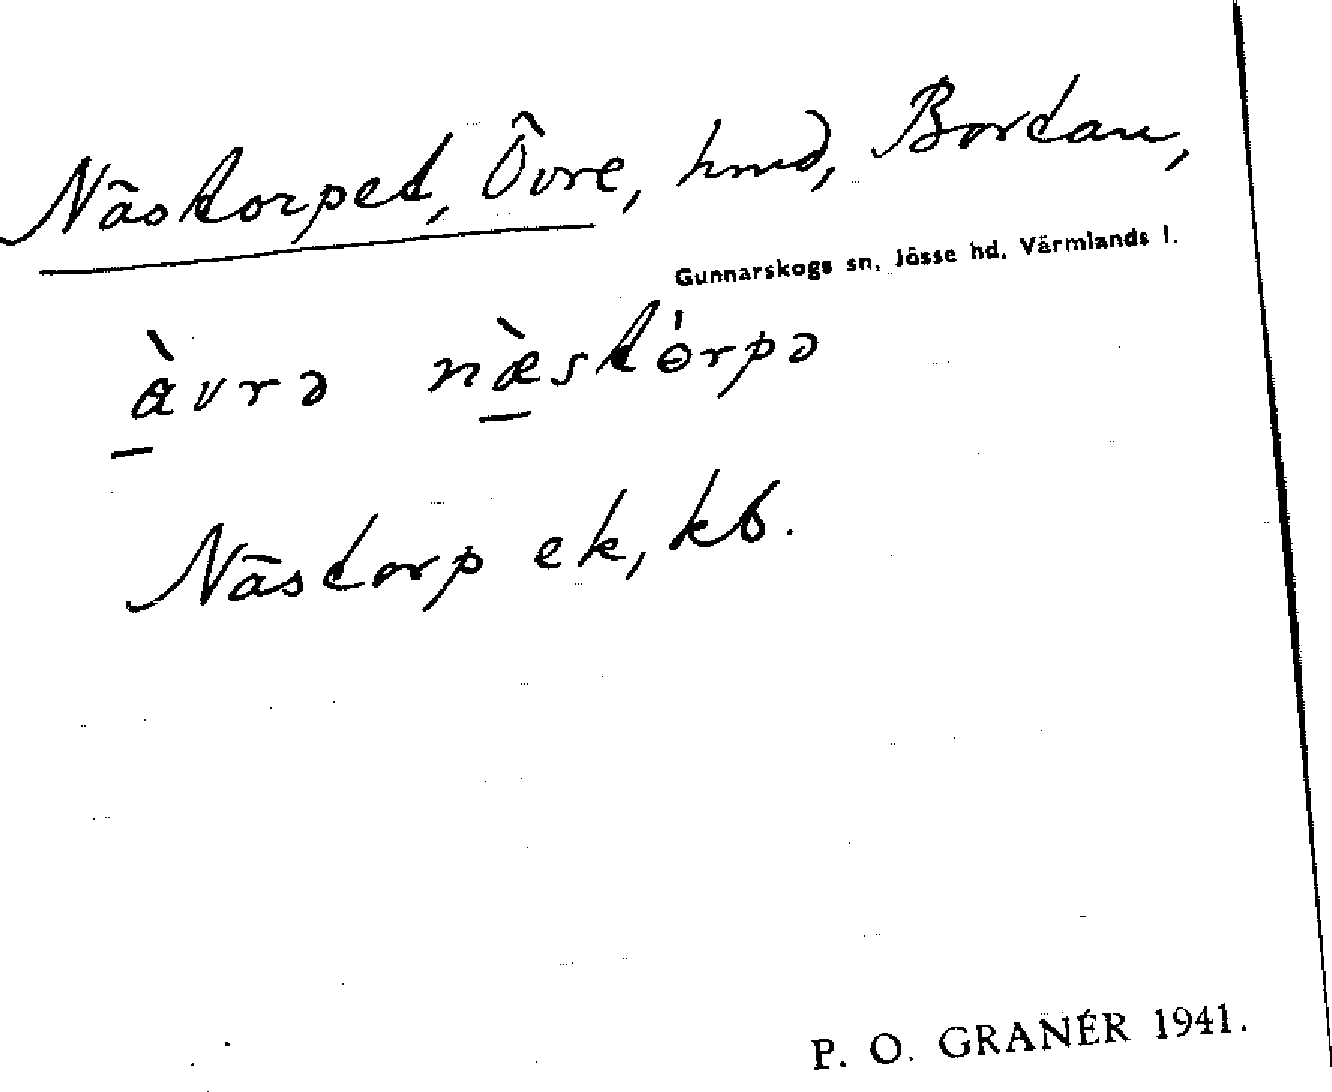 Nästorpet, Övre, hmd, Bortan,
Gunnarskogs sn, Jösse hd, Värmlands l.
àvrə næ̀stórpə
Nästorp ek, kb.
P. O. GRANÉR 1941.